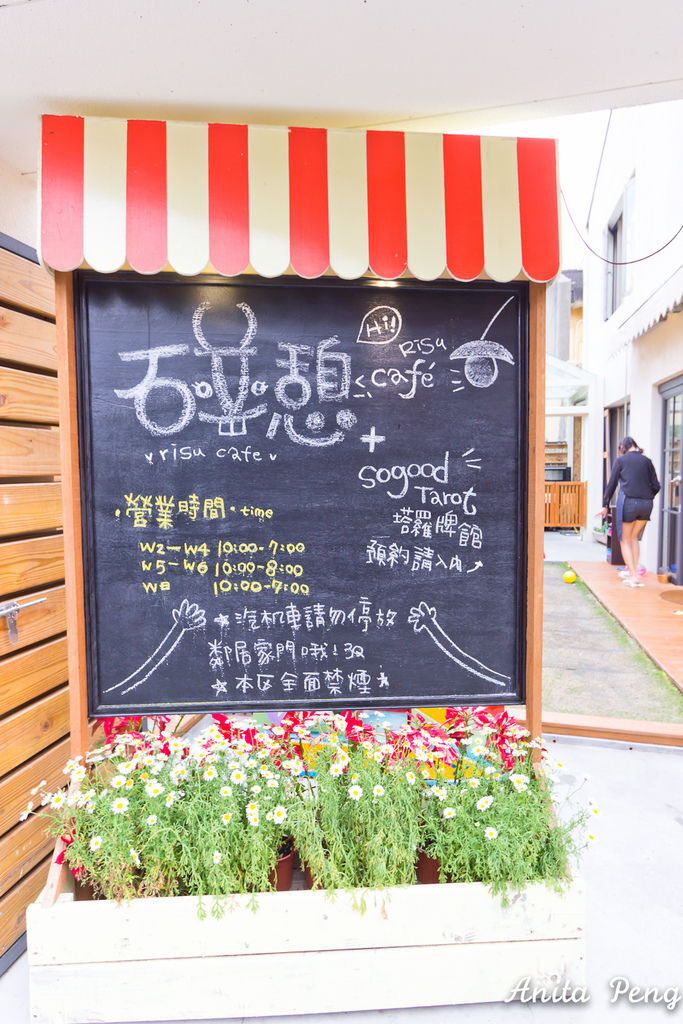 Hi!
RISU
café
石豆憩
risu cafe
+
sogood
Tarot
塔羅牌館
預約請入內
營業時間·time
W2-W4 10:00-7:00
W5-W6 10:00-8:00
10:00-7:00
汽机車請勿停放
鄰居家門哦!
本区全面禁煙
Anita Peng